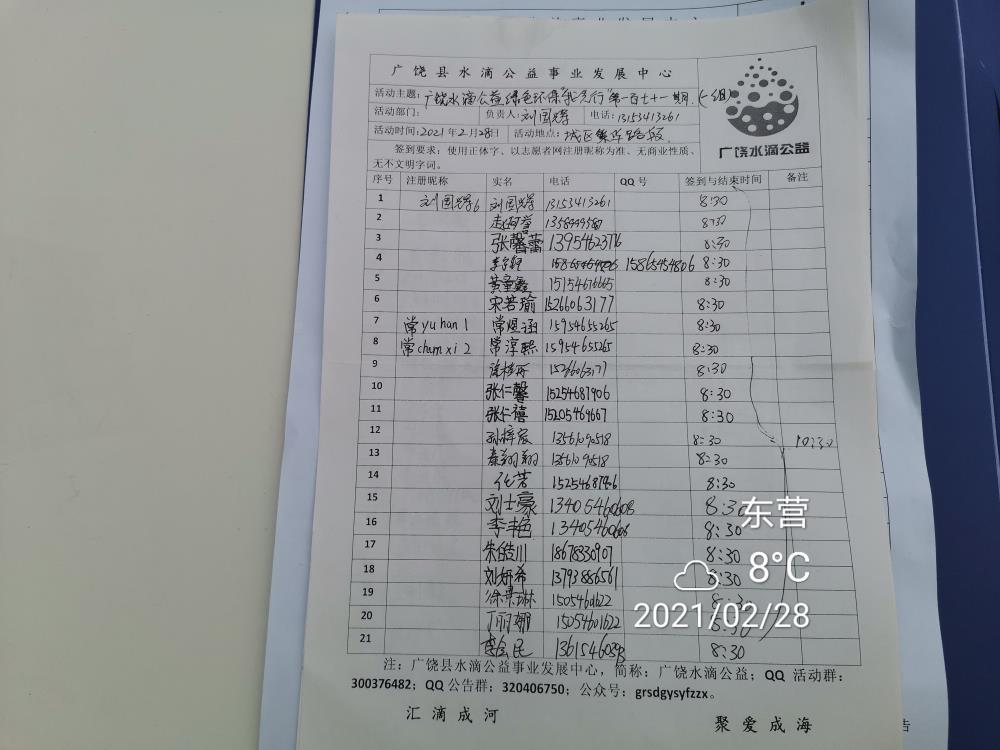 广饶县水滴公益事业发展中心
活动主题：广饶水滴公益绿色环保"我先行"第一百七十一期.(一组)
活动部门： 负责人：刘国华 电话：13153413261
活动时间：2021年2月28日 活动地点：城区 路段
签到要求：使用正体字、以志愿者网注册昵称为准、无商业性质、
无不文明字词。
广饶水滴公益
序号 注册昵称 实名 电话 QQ号 签到与结束时间 备注
1 8:30 13153413261
2 8:30
3 张馨蕾 13954623776 8:30
4 15865454806 8:30
5 15154676665 8:30
6 宋若瑜 15266063177 8:30
7 常yuhan1 常煜涵 15954655265 8:30
8 常chunxi2 常淳熙 15954655265 8:30
9 15266063177 8:30
10 张仁馨 15254687906 8:30
11 张仁禧 15205469667 8:30
12 孙梓宸 13561090518 8:30 10:30
13 秦翔翔 13561090518 8:30
14 化芳 8:30
15 刘士豪 13405460608 8:30
16 李丰色 13405460608 8:30
17 朱皓川 18678330907 8:30
18 刘妍希 13793886561 8:30
19 徐 琳 15054601622 8:30
20 丁丽娜 15054601622 8:30
21 李会民 8:30
东营
8°C
2021/02/28
注：广饶县水滴公益事业发展中心，简称：广饶水滴公益；QQ 活动群：
300376482；QQ 公告群：320406750；公众号：grsdgysyfzzx。
汇滴成河 聚爱成海
告